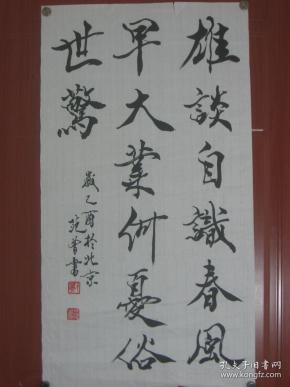 雄談自識春風
早大業何憂俗
世驚
歲乙酉於北京
范曾書
孔夫子旧书网